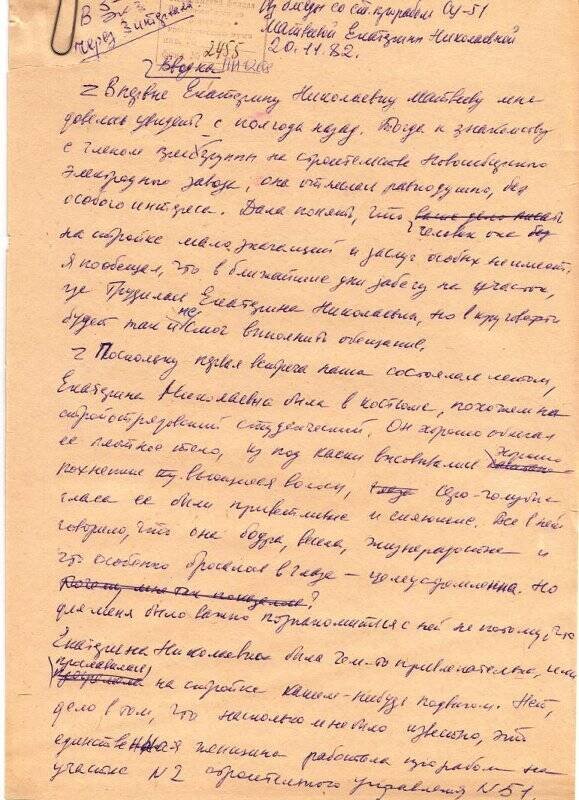 В 5
Эк 3
через 3 интервала
Из беседы со ст. прорабом СУ-51
Матвеевой Екатерины Николаевной
20.11.82.
2455
Вводка
Впервые Екатерину Николаевну Матвееву мне
довелось увидеть с полгода назад. Тогда к знакомству
с членом на строительстве Новосибирского
Электродного завода, она отнеслась равнодушно, без
особого интереса. Дала понять, что человек она
на стройке мало значащий и заслуг особых не имеет.
Я пообещал, что в ближайшие дни забегу на участок,
где трудилась Екатерина Николаевна, но в круговерти
будет так и не смог выполнить обещание.
Поскольку первая встреча наша состоялась летом,
Екатерина Николаевна была в костюме, похожем на
стройотрядовский студенческий. Он хорошо облегал
ее плотное тело, из под каски высовывались хорошо
волосы, серо-голубые
глаза ее были приветливые и сияющие. Все в ней
говорило, что она бодра, весела, жизнерадостна и
что особенно бросалось в глаза – целеустремленна. Но
почему мне так показалось?
для меня было важно познакомиться с ней не потому, что
Екатерина Николаевна была чем-то привлекательна, или
прославилась на стройке каким-нибудь подвигом. Нет,
дело в том, что насколько мне было известно, эта
единственная женщина работала прорабом на
участке N2 строительного управления N51.